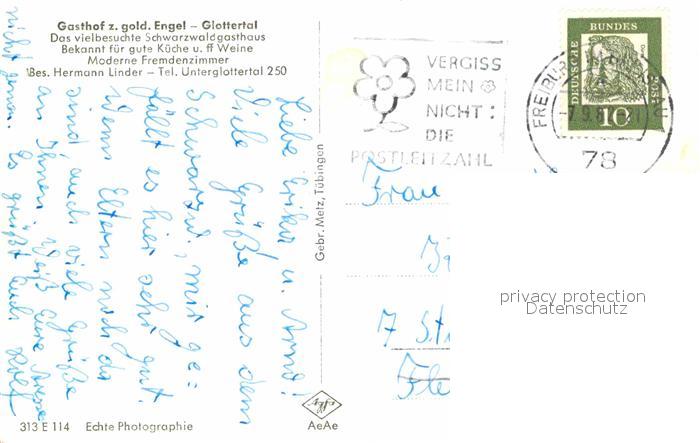 Gasthof z. gold. Engel – Glottertal
Das vielbesuchte Schwarzwaldgasthaus
Bekannt für gute Küche u. ff Weine
Moderne Fremdenzimmer
Bes. Hermann Linder – Tel. Unterglottertal 250
Liebe Erika u. Arno!
Viele Grüße aus dem
Schwarzw., mir ge=
fällt es hier sehr gut.
Wenn Eltern nich da
sind auch viele Grüße
an Ihnen. Weiß eure Adresse
nicht genau. Es grüßt euch Rolf
Gebr. Metz, Tübingen
VERGISS
MEIN
NICHT:
DIE
POSTLEITZAHL
DEUTSCHE BUNDESPOST
10
FREIBURG
78
Frau
7 St
Fle
privacy protection
Datenschutz
313 E 114 Echte Photographie
Agfa
AeAe